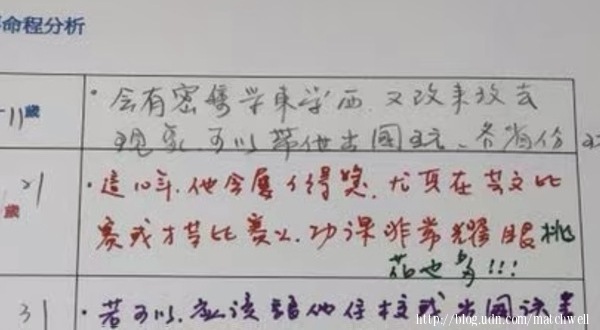 命程分析
11歲
·会有密集学東学西.又改来改去
現象.可以帶他出國玩、各省份
21
歲
·這10年.他會屢得獎.尤其在芸文比
賽或才芸比賽.功课非常耀眼桃
花也多!!!
31
·若可以.应該讓他住校或出国讀書
http://blog.udn.com/matchwell